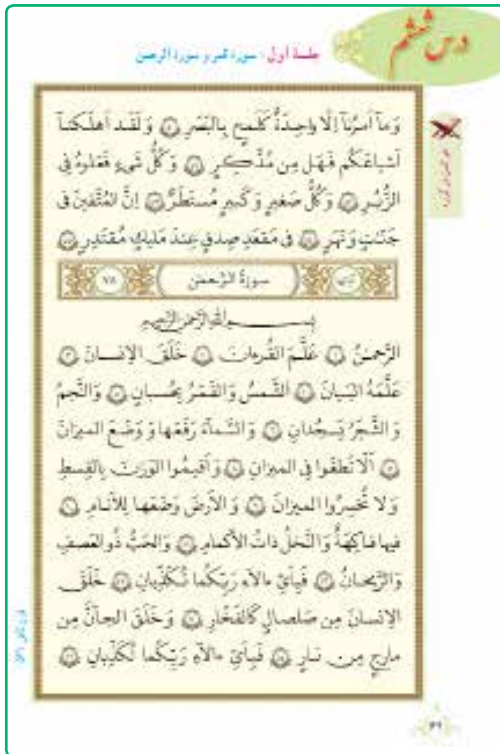 درس ششم
جلسهٔ اول : سورهٔ قمر و سورهٔ الرحمن
وَمآ اَمرُنآ اِلّا واحِدَةٌ كَلَمحٍ بِالبَصَرِ ۵۰ وَ لَقَد اَهلَكنآ
اَشياعَكُم فَهَل مِن مُدَّكِرٍ ۵۱ وَ كُلُّ شَیءٍ فَعَلوهُ فِی
الزُّبُرِ ۵۲ وَ كُلُّ صَغيرٍ وَ كَبيرٍ مُستَطَرٌ ۵۳ اِنَّ المُتَّقينَ فی
جَنّاتٍ وَ نَهَرٍ ۵۴ فی مَقعَدِ صِدقٍ عِندَ مَليكٍ مُقتَدِرٍ ۵۵
سورَةُ الرَّحمٰن ۷۸
بِسمِ اللّٰهِ الرَّحمٰنِ الرَّحيمِ
اَلرَّحمٰنُ ۱ عَلَّمَ القُرءانَ ۲ خَلَقَ الاِنسانَ ۳
عَلَّمَهُ البَيانَ ۴ اَلشَّمسُ وَ القَمَرُ بِحُسبانٍ ۵ وَ النَّجمُ
وَ الشَّجَرُ يَسجُدانِ ۶ وَ السَّمآءَ رَفَعَها وَ وَضَعَ الميزانَ
۷ اَلّا تَطغَوا فِی الميزانِ ۸ وَ اَقيمُوا الوَزنَ بِالقِسطِ
وَ لا تُخسِرُوا الميزانَ ۹ وَ الاَرضَ وَضَعَها لِلاَنامِ ۱۰
فيها فاكِهَةٌ وَ النَّخلُ ذاتُ الاَكمامِ ۱۱ وَ الحَبُّ ذُو العَصفِ
وَ الرَّيحانُ ۱۲ فَبِاَیِّ ءالآءِ رَبِّكُما تُكَذِّبانِ ۱۳ خَلَقَ
الاِنسانَ مِن صَلصالٍ كَالفَخّارِ ۱۴ وَ خَلَقَ الجآنَّ مِن
مارِجٍ مِن نارٍ ۱۵ فَبِاَیِّ ءالآءِ رَبِّكُما تُكَذِّبانِ ۱۶